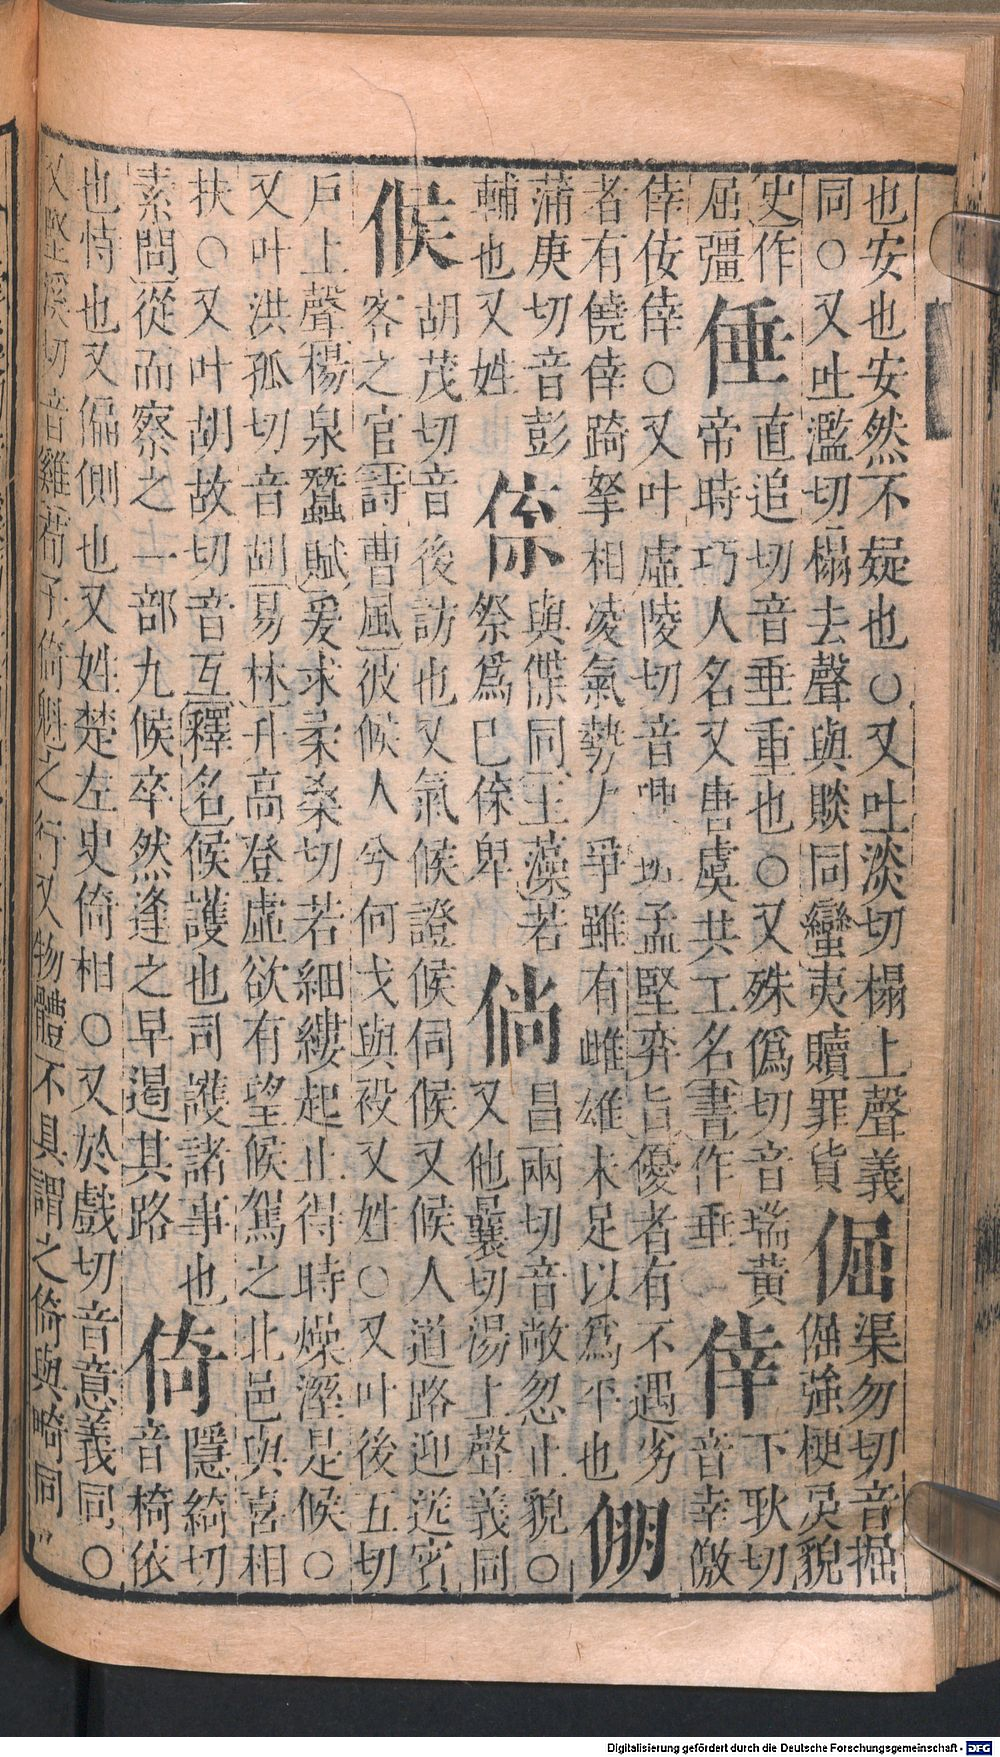 也安也安然不疑也○又吐淡切榻上聲義
同○又吐濫切榻去聲與賧同蠻夷贖罪貨
倔
渠勿切音掘
倔強梗戾貌
史作
屈彊
倕
直追切音垂重也○又殊僞切音瑞黃
帝時巧人名又唐虞共工名書作垂
倖
下耿切
音幸儌
倖佞倖○又叶虛陵切音興 孟堅弈旨優者有不遇劣
者有僥倖踦拏相凌氣勢力爭雖有雌雄未足以爲平也
倗
蒲庚切音彭
輔也又姓
倷
與傑同玉藻若
祭爲已倷卑
倘
昌兩切音敞忽止貌○
又他曩切湯上聲義同
候
胡茂切音後訪也又氣候證候伺候又候人道路迎送賓
客之官詩曹風彼候人兮何戈與祋又姓○又叶後五切
戶上聲楊泉蠶賦爰求柔桑切若細縷起止得時燥溼是候○
又叶洪孤切音胡易林升高登虛欲有望候駕之北邑與喜相
扶○又叶胡故切音互釋名候護也司護諸事也
素問從而察之一部九候卒然逢之早遏其路
倚
隱綺切
音椅依
也恃也又偏側也又姓楚左史倚相○又於戲切音意義同○
又堅溪切音雞荀子倚魁之行又物體不具謂之倚與畸同
Digitalisierung gefördert durch die Deutsche Forschungsgemeinschaft - DFG